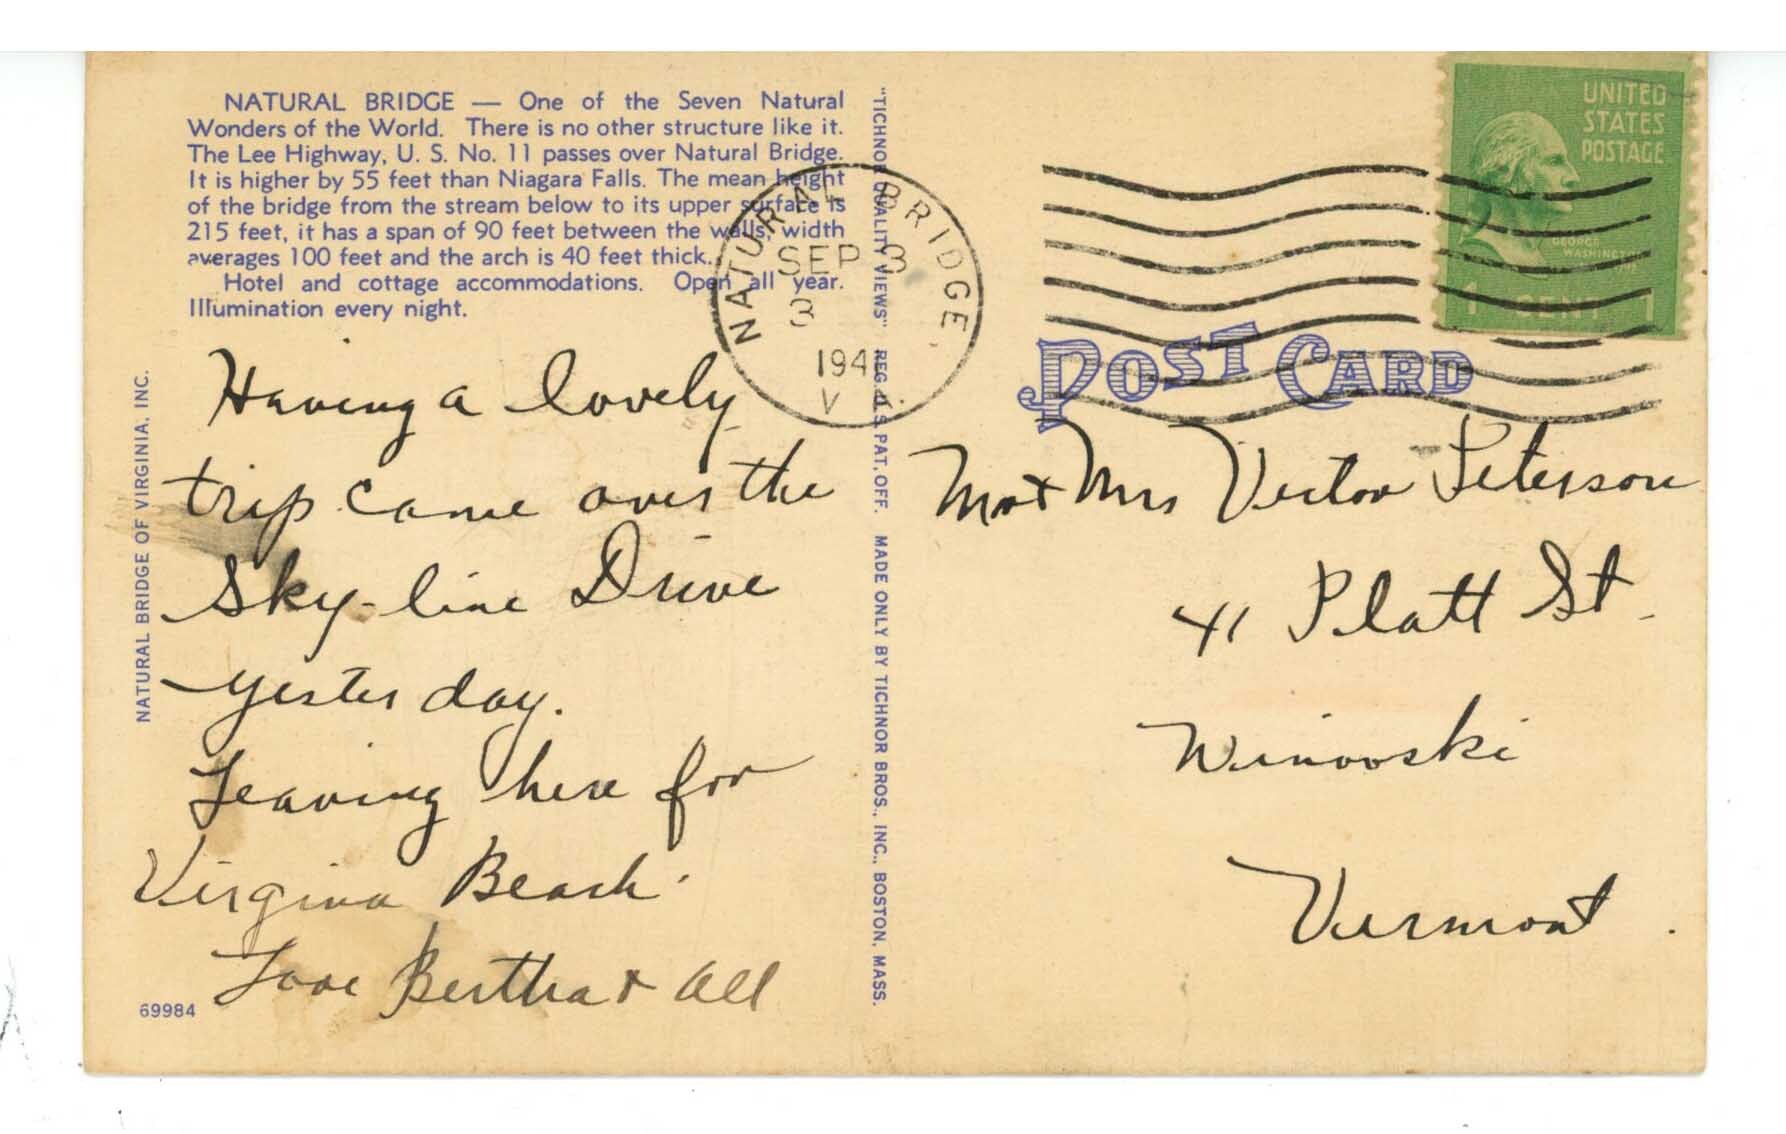 NATURAL BRIDGE — One of the Seven Natural
Wonders of the World. There is no other structure like it.
The Lee Highway, U. S. No. 11 passes over Natural Bridge.
It is higher by 55 feet than Niagara Falls. The mean height
of the bridge from the stream below to its upper surface is
215 feet, it has a span of 90 feet between the walls, width
averages 100 feet and the arch is 40 feet thick.
Hotel and cottage accommodations. Open all year.
Illumination every night.
NATURAL BRIDGE OF VIRGINIA, INC.
Having a lovely
trip came over the
Sky-line Drive
yesterday.
Leaving here for
Virgina Beach.
Love Bertha + all
69984
"TICHNOR QUALITY VIEWS" REG. U.S. PAT. OFF. MADE ONLY BY TICHNOR BROS., INC., BOSTON, MASS.
NATURAL BRIDGE,
SEP 3
3
194
V
UNITED
STATES
POSTAGE
GEORGE
WASHINGTON
1 CENT 1
POST CARD
Mr + Mrs Victor Peterson
41 Platt St.
Winooski
Vermont.